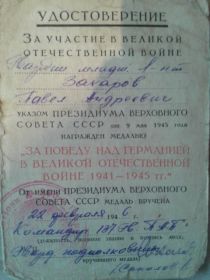 УДОСТОВЕРЕНИЕ
ЗА УЧАСТИЕ В ВЕЛИКОЙ
ОТЕЧЕСТВЕННОЙ ВОЙНЕ
Захаров
Павел Андреевич
УКАЗОМ ПРЕЗИДИУМА ВЕРХОВНОГО
СОВЕТА СССР от 9 мая 1945 года
НАГРАЖДЕН МЕДАЛЬЮ
„ЗА ПОБЕДУ НАД ГЕРМАНИЕЙ
В ВЕЛИКОЙ ОТЕЧЕСТВЕННОЙ
ВОЙНЕ 1941—1945 гг."
От имени ПРЕЗИДИУМА ВЕРХОВНОГО
СОВЕТА СССР МЕДАЛЬ ВРУЧЕНА
22 февраля 1946 г.
Командир
подполковник
вручившего медаль)